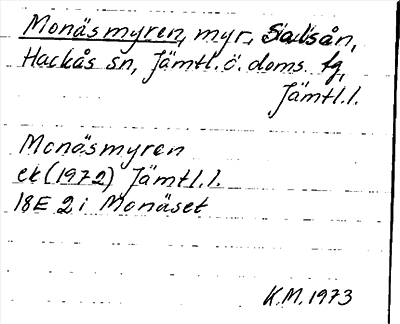 Monäsmyren, myr,
Hackås sn, Jämtl. ö. doms. fg,
Jämtl.l.
Monäsmyren
ek (1972) Jämtl.l.
18E 2i Monäset
K.M. 1973